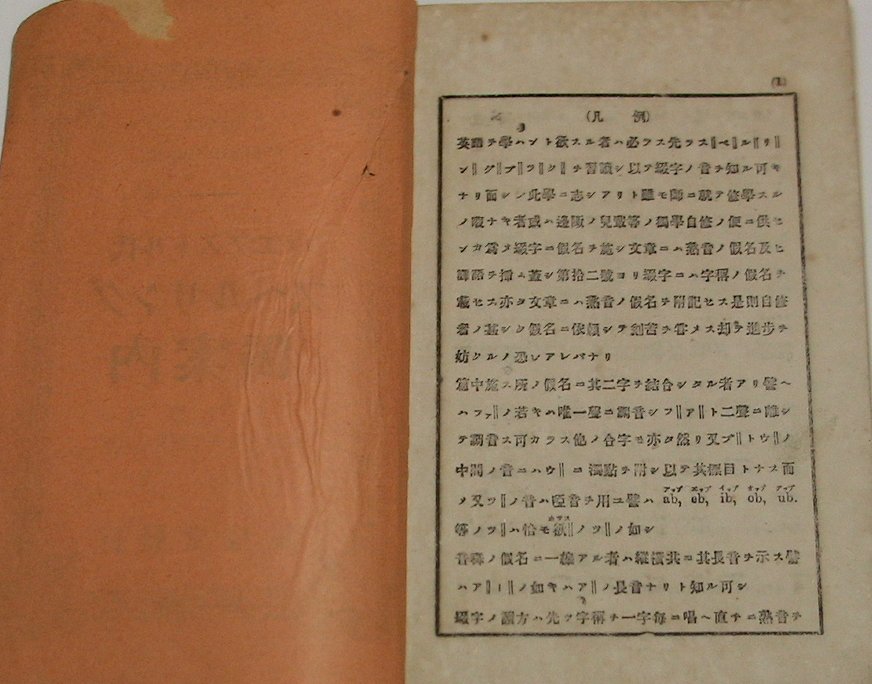 (1)
(凡例)
英語ヲ學ハント欲スル者ハ必ラス先ラス‖ペ‖ル‖リ‖
ン‖グ‖ブ‖ツ‖ク‖ヲ習讀シ以テ綴字ノ音ヲ知ル可キ
ナリ而シン此學ニ志シアリト雖モ師ニ就テ修學スル
ノ暇ナキ者或ハ邊陬ノ兒童等ノ獨學自修ノ便ニ供セ
ンカ爲メ綴字ニ假名ヲ施シ文章ニハ熟音ノ假名及ヒ
譯語ヲ揷ニ蓋シ第拾二號ヨリ綴字ニハ字稱ノ假名ヲ
載セス亦タ文章ニハ熟音ノ假名ヲ附記セス是則自修
者ノ甚シク假名ニ依賴シテ刻苦ヲ甞メス却テ進步ヲ
妨クルノ恐レアレバナリ
篇中施ス所ノ假名ニ其二字ヲ結合シタル者アリ譬ヘ
ハファ‖ノ若キハ唯一聲ニ調音シフ‖ア‖ト二聲ニ離シ
テ調音ス可カラス他ノ合字モ亦タ然リ又ブ‖トウ‖ノ
中間ノ音ニハウ‖ニ濁點ヲ附シ以テ其標目トナス而
メ又ツ‖ノ音ハ促音ヲ用ユ譬ハ ab, eb, ib, ob, ub.
等ノツ‖ハ恰モ紙‖ノツ‖ノ如シ
音稱ノ假名ニ一線アル者ハ縱橫共ニ其長音ヲ示ス譬
ハア‖ー‖ノ如キハア‖ノ長音ナリト知ル可シ
綴字ノ讀方ハ先ツ字稱ヲ一字每ニ唱ヘ直チニ熟音ヲ